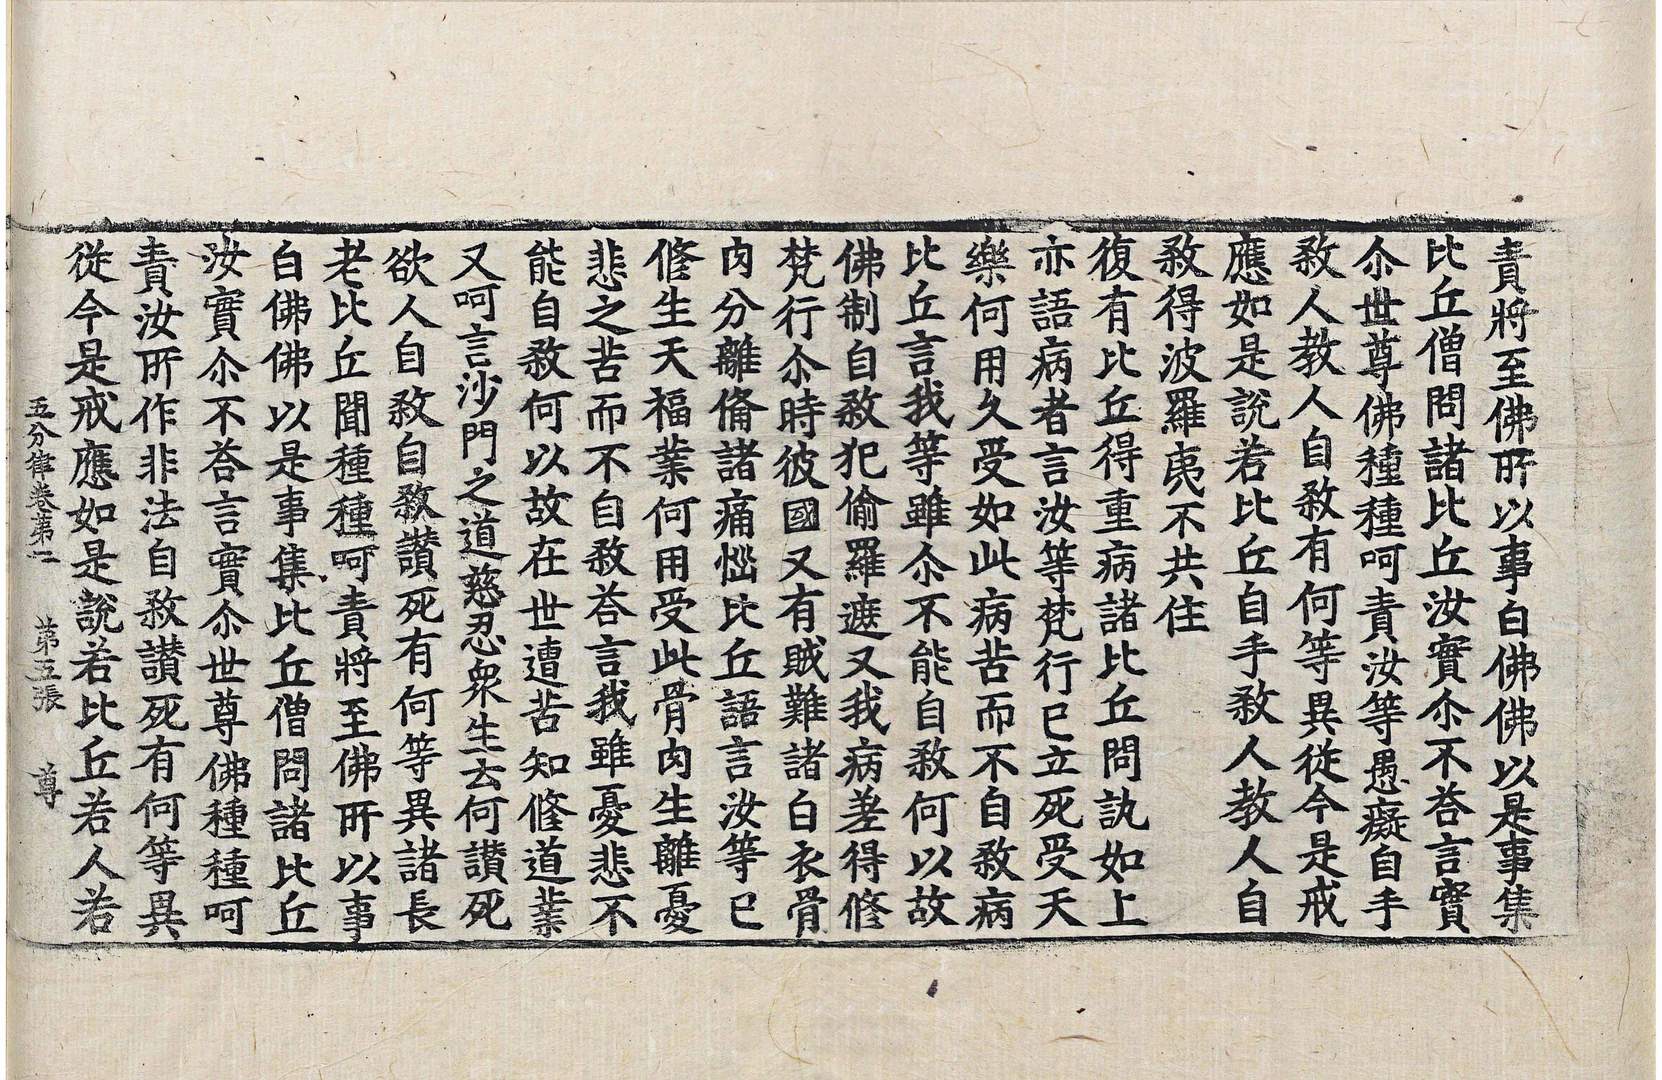 責將至佛所以事白佛佛以是事集
比丘僧問諸比丘汝實尒不荅言實
尒世尊佛種種呵責汝等愚癡自手
敎人教人自敎有何等異從今是戒
應如是說若比丘自手敎人教人自
敎得波羅夷不共住
復有比丘得重病諸比丘問訊如上
亦語病者言汝等梵行已立死受天
樂何用久受如此病苦而不自敎病
比丘言我等雖尒不能自敎何以故
佛制自敎犯偷羅遮又我病差得修
梵行尒時彼國又有賊難諸白衣骨
肉分離俻諸痛惱比丘語言汝等已
修生天福業何用受此骨肉生離憂
悲之苦而不自敎荅言我雖憂悲不
能自敎何以故在世遭苦知修道業
又呵言沙門之道慈忍衆生云何讃死
欲人自敎自敎讃死有何等異諸長
老比丘聞種種呵責將至佛所以事
白佛佛以是事集比丘僧問諸比丘
汝實尒不荅言實尒世尊佛種種呵
責汝所作非法自敎讃死有何等異
從今是戒應如是說若比丘若人若
五分律卷第二 第五張 尊